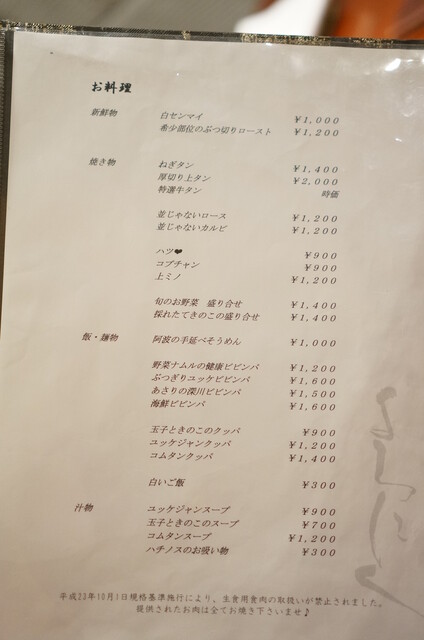 お料理
新鮮物 白センマイ ¥1,000
希少部位のぶつ切りロースト ¥1,200
焼き物 ねぎタン ¥1,400
厚切り上タン ¥2,000
特選牛タン 時価
並じゃないロース ¥1,200
並じゃないカルビ ¥1,200
ハツ❤ ¥900
コプチャン ¥900
上ミノ ¥1,200
旬のお野菜 盛り合せ ¥1,400
採れたてきのこの盛り合せ ¥1,400
飯・麺物 阿波の手延べそうめん ¥1,000
野菜ナムルの健康ビビンバ ¥1,200
ぶつぎりユッケビビンバ ¥1,600
あさりの深川ビビンバ ¥1,500
海鮮ビビンバ ¥1,600
玉子ときのこのクッパ ¥900
ユッケジャンクッパ ¥1,200
コムタンクッパ ¥1,400
白いご飯 ¥300
汁物 ユッケジャンスープ ¥900
玉子ときのこのスープ ¥700
コムタンスープ ¥1,200
ハチノスのお吸い物 ¥300
平成23年10月1日規格基準施行により、生食用食肉の取扱いが禁止されました。
提供されたお肉は全てお焼き下さいませ♪